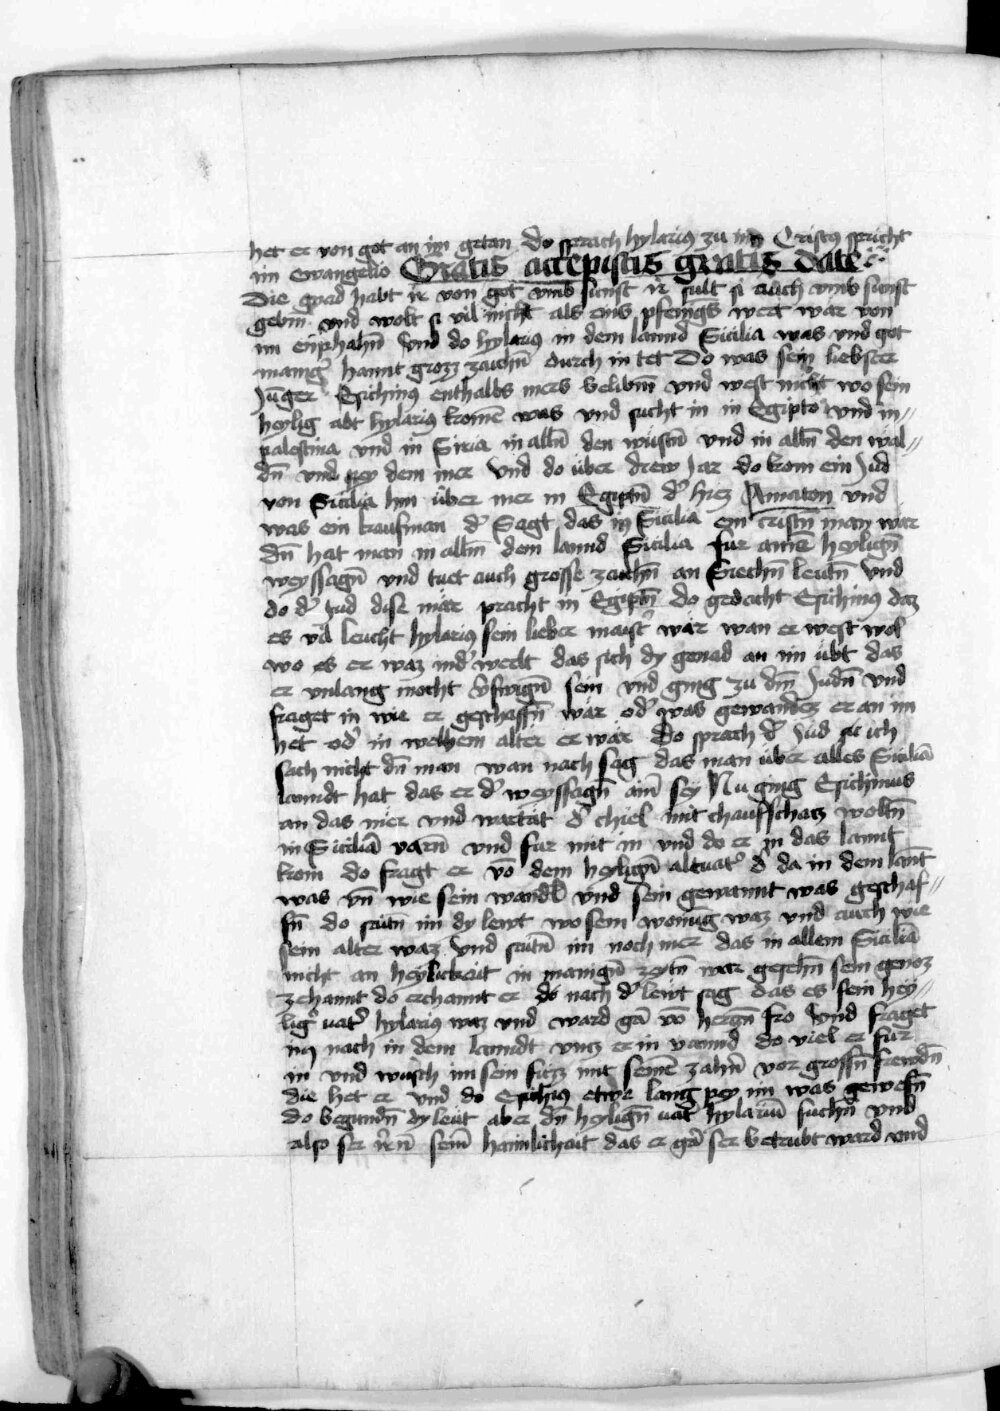 het er von got an im getan do sprach hylarius zu im Cristus spricht
im ewangelio Gratis accepistis gratis date
Die gnad habt ir von got vmb sunst ir sult si auch vmb sunst
gebm vnd wolt si vil nicht als eins pfenigs wert war von
im enphahn̄ Vnd do hylarius in dem lannd Sicilia was vnd got
manig' hannt grozz zaichn̄ durch in tet Do was sein liebster
Jūger Esichius enthalbs mers belibm̄ vnd west nicht wo sein
heylig abt hylarius komē was vnd sucht in in Egipto vnd in
palestina vnd in Siria in alln̄ den wüstn̄ vnd in alln̄ den wäl
dn̄ vnd pey dem mer Vnd do über drew Jar do kom ein Jud
von Sicilia hin über mer in Egiptn̄ d' hiez Amaton vnd
was ein kaufman d' Sagt das in Sicilia ein cristn̄ man wär
dn̄ hat man in allm̄ dem lannd Sicilia für ainē heylign̄
weyssagn̄ vnd tuet auch grosse zaichn̄ an Siechn̄ leutn̄ Vnd
do d' Jud dise mär pracht in Egiptn̄ do gedacht Esichius daz
es vil leucht hylarius sein lieber maist' wär wan er west wol
wo es er waz ind' werlt das sich dy genad an im übt das
er vnlang mocht v'swign̄ sein vnd ging zu dm̄ Judn̄ vnd
fraget in wie er geschaffn̄ wär od' was gewandez er an im
het od' in welhem alter er wär Do sprach d' Jud ich
sach nicht dn̄ man wan nach sag das man über alles Siciliā
lanndt hat das er d' weyssagn̄ ainer sey Nu ging Esichius
an das mer vnd wartät d' chiel mit chauffschacz woltn̄
in Siciliā varn̄ vnd fur mit in vnd do er in das lannt
kom do fragt er vō dem heylign̄ altuat' d' da in dem lānt
was vn̄ wie sein wandl vnd sein gewannt was geschaf
fn̄ do saitn̄ im dy lewt wo sein wonūg waz vnd auch wie
sein alter waz Vnd saitn̄ im noch mer das in allem Siciliā
nicht an heylickait in manign̄ zeytn̄ wär gesehn̄ sein genoz
zehannt do erchannt er do nach d' lewt sag das es sein hey
lig' uat' hylarius waz vnd ward gā vō herczn̄ fro Vnd fraget
im nach in dem lanndt vncz er in vannd do viel er für
in vnd wusch im sein füzz mit seinē zähn̄ vor grossn̄ frewdn̄
die het er vnd do Esichius etwe lang pey im was gewesn̄
do begundn̄ dy leut aber dn̄ heylign̄ uat' hylariū suchn̄ vnd
also ser irrn̄ seinē haimlichait das er gā ser betrubt ward vnd